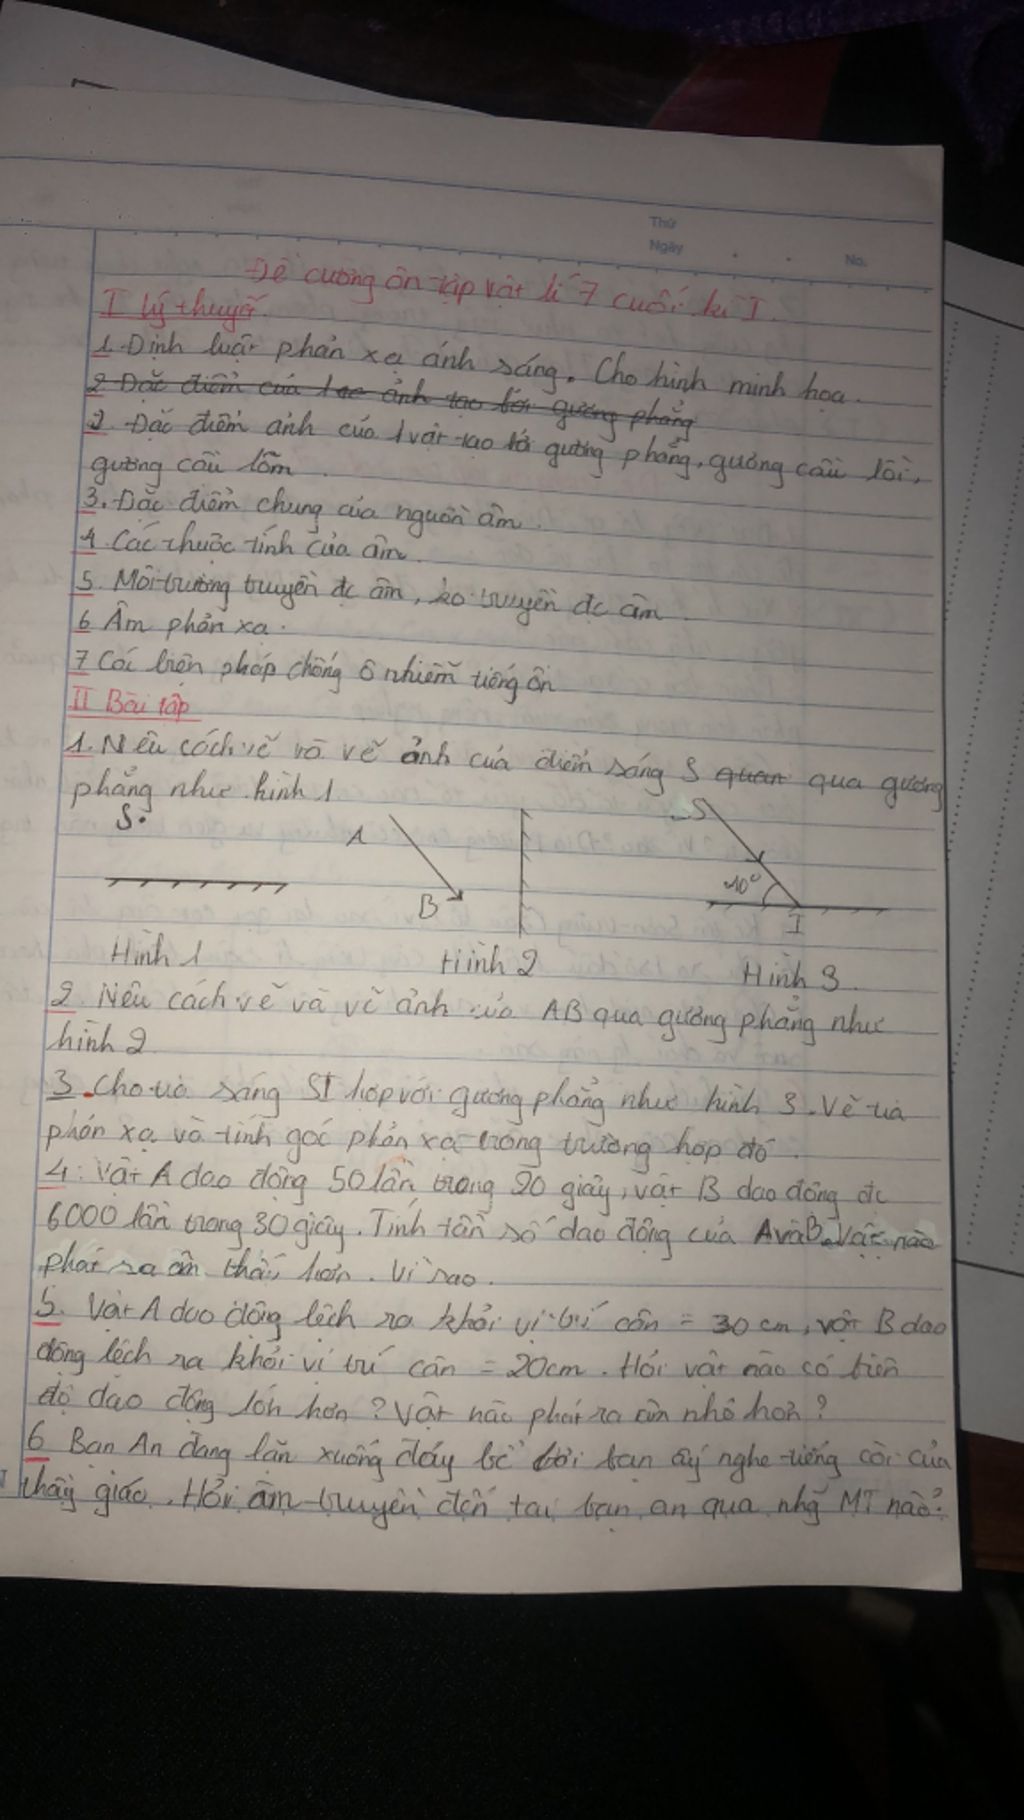 Thứ
Ngày
No.
Đề cương ôn tập vật lí 7 cuối kì I.
I Lý thuyết.
1. Định luật phản xạ ánh sáng. Cho hình minh họa.
2. Đặc điểm của ảnh tạo bởi gương phẳng
2. Đặc điểm ảnh của 1 vật tạo bởi gương phẳng, gương cầu lồi,
gương cầu lõm.
3. Đặc điểm chung của nguồn âm.
4. Các thuộc tính của âm.
5. Môi trường truyền đc âm, ko truyền đc âm.
6 Âm phản xạ.
7 Các biện pháp chống ô nhiễm tiếng ồn
II Bài tập
1. Nêu cách vẽ và vẽ ảnh của điểm sáng S quan qua gương
phẳng như hình 1
S
A
B
S
40°
I
Hình 1
Hình 2
Hình 3
2. Nêu cách vẽ và vẽ ảnh của AB qua gương phẳng như
hình 2
3. Cho tia sáng SI hợp với gương phẳng như hình 3. Vẽ tia
phản xạ và tính góc phản xạ trong trường hợp đó.
4: Vật A dao động 50 lần trong 20 giây, vật B dao động đc
6000 lần trong 30 giây. Tính tần số dao động của A và B. Vật nào
phát ra âm thấp hơn. Vì sao.
5. Vật A dao động lệch ra khỏi vị trí cân = 30 cm, vật B dao
động lệch ra khỏi vị trí cân = 20cm. Hỏi vật nào có biên
độ dao động lớn hơn? Vật nào phát ra âm nhỏ hơn?
6 Bạn An đang lặn xuống đáy bể bơi bạn ấy nghe tiếng còi của
thầy giáo. Hỏi âm truyền đến tai bạn an qua nhg MT nào?